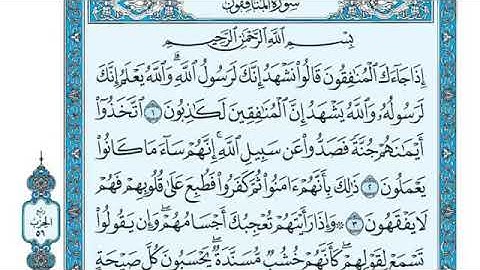 سورة المنافقون
بِسْمِ اللَّهِ الرَّحْمَٰنِ الرَّحِيمِ
إِذَا جَاءَكَ الْمُنَافِقُونَ قَالُوا نَشْهَدُ إِنَّكَ لَرَسُولُ اللَّهِ ۗ وَاللَّهُ يَعْلَمُ إِنَّكَ
لَرَسُولُهُ وَاللَّهُ يَشْهَدُ إِنَّ الْمُنَافِقِينَ لَكَاذِبُونَ ١ اتَّخَذُوا
أَيْمَانَهُمْ جُنَّةً فَصَدُّوا عَن سَبِيلِ اللَّهِ ۚ إِنَّهُمْ سَاءَ مَا كَانُوا
يَعْمَلُونَ ٢ ذَٰلِكَ بِأَنَّهُمْ ءَامَنُوا ثُمَّ كَفَرُوا فَطُبِعَ عَلَىٰ قُلُوبِهِمْ فَهُمْ
لَا يَفْقَهُونَ ٣ ۞ وَإِذَا رَأَيْتَهُمْ تُعْجِبُكَ أَجْسَامُهُمْ ۖ وَإِن يَقُولُوا
تَسْمَعْ لِقَوْلِهِمْ ۖ كَأَنَّهُمْ خُشُبٌ مُّسَنَّدَةٌ ۖ يَحْسَبُونَ كُلَّ صَيْحَةٍ
الحزب
٥٦